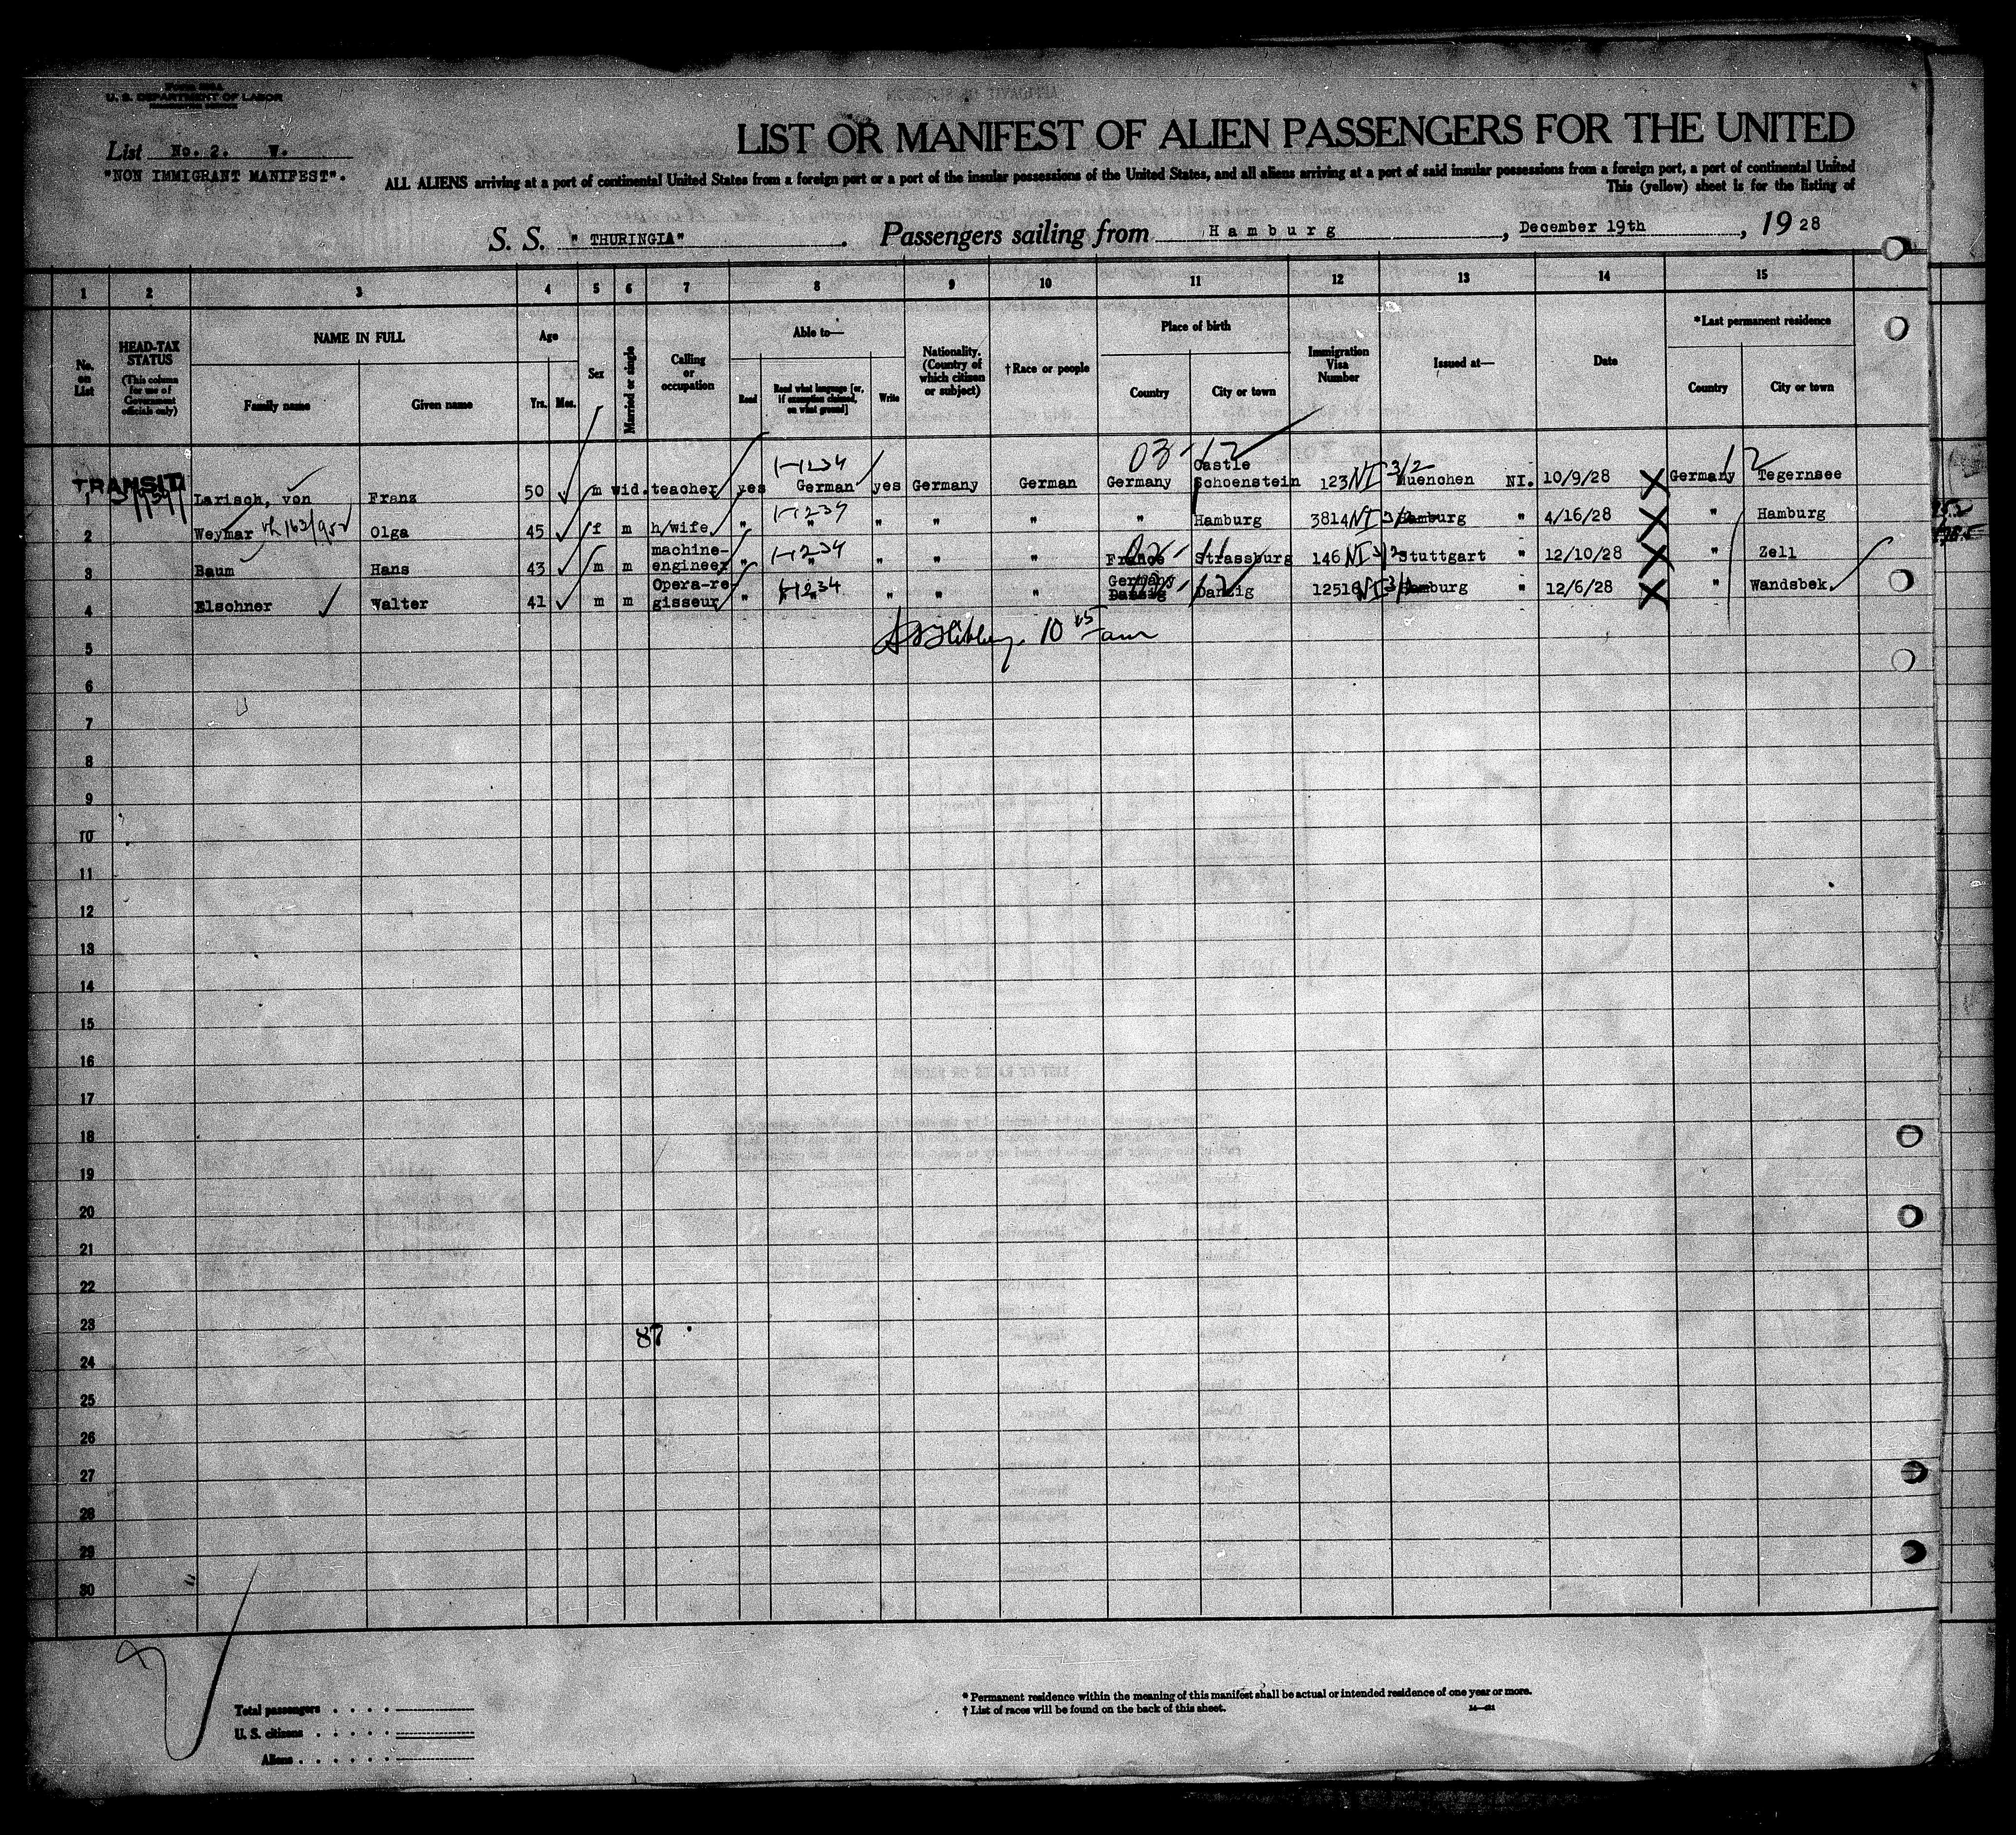 U. S. DEPARTMENT OF LABOR
List No. 2. W.
"NON IMMIGRANT MANIFEST".
LIST OR MANIFEST OF ALIEN PASSENGERS FOR THE UNITED
ALL ALIENS arriving at a port of continental United States from a foreign port or a port of the insular possessions of the United States, and all aliens arriving at a port of said insular possessions from a foreign port, a port of continental United
This (yellow) sheet is for the listing of
S. S. " THURINGIA" . Passengers sailing from Hamburg , December 19th , 19 28
1 2 3 4 5 6 7 8 9 10 11 12 13 14 15
No. on List
HEAD-TAX STATUS
(This column for use of Government officials only)
NAME IN FULL
Family name Given name
Age
Yrs. Mos.
Sex
Married or single
Calling or occupation
Able to—
Read
Read what language [or, if exemption claimed, on what ground]
Write
Nationality. (Country of which citizen or subject)
†Race or people
Place of birth
Country City or town
Immigration Visa Number
Issued at—
Date
*Last permanent residence
Country City or town
TRANSIT
03-12
Castle
1 Larisch, von Franz 50 m wid. teacher yes German yes Germany German Germany Schoenstein 123 NI 3/2 Muenchen NI. 10/9/28 X Germany Tegernsee
2 Weymar Olga 45 f m h/wife " " " " " " Hamburg 3814 NI Hamburg " 4/16/28 X " Hamburg
machine-
3 Baum Hans 43 m m engineer " " " " " France Strassburg 146 NI Stuttgart " 12/10/28 X " Zell
Opera-re- Germany
4 Elschner Walter 41 m m gisseur " " " " " Danzig Danzig 12516 NI Hamburg " 12/6/28 X " Wandsbek.
5
6
7
8
9
10
11
12
13
14
15
16
17
18
19
20
21
22
23
87
24
25
26
27
28
29
30
Total passengers
U. S. citizens
Aliens
* Permanent residence within the meaning of this manifest shall be actual or intended residence of one year or more.
† List of races will be found on the back of this sheet.